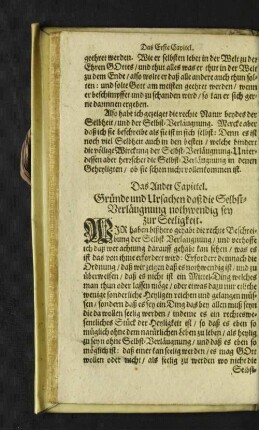 Das Erste Capitel.
geehret werden. Wie er selbsten lebet in der Welt zu der
Ehren GOttes / und thut alles was er thut in der Welt
zu dem Ende / also wolte er daß alle andere auch thun sol-
ten: und solte Gott am meisten geehret werden / wenn
er beschimpffet und zu schanden wird / so kan er sich ger-
ne darinnen ergeben.
Also habe ich gezeiget die rechte Natur beydes der
Selbheit / und der Selbst-Verläugnung. Mercke aber
daß ich sie beschreibe als sie ist in sich selbst: Denn es ist
noch viel Selbheit auch in den besten / welche hindert
die völlige Wirckung der Selbst-Verläugnung. Unter-
dessen aber herrschet die Selbst-Verläugnung in denen
Geheyligten / ob sie schon nicht vollenkommen ist.
Das Ander Capittel.
Gründe und Ursachen daß die Selbst-
Verläugnung nothwendig sey
zur Seeligkeit.
WIR haben bißhero gehabt die rechte Beschrei-
bung der Selbst Verläugnung / und verhoffe
ich daß wer achtung darauff gehabt kan sehen / was es
ist das von ihme erfordert wird: Erfordert demnach die
Ordnung / daß wir zeigen daß es nothwendig ist / und zu
überweisen / daß es nicht ist ein Mittel-Ding welches
man thun oder lassen möge / oder etwas dazu nur etliche
wenige sonderliche Heyligen reichen und gelangen müs-
sen / sondern daß es sey ein Ding das bey allen muß seyn
die da wollen seelig werden / indeme es ein rechtes we-
sentliches Stück der Heyligkeit ist / so daß es eben so
müglich ohne dem natürlichen leben zu leben / als heylig
zu seyn ohne Selbst-Verläugnung / und daß es eben so
möglich ist: daß einer kan seelig werden / es mag GOtt
wollen oder nicht / als seelig zu werden wo nicht die
Selbst-